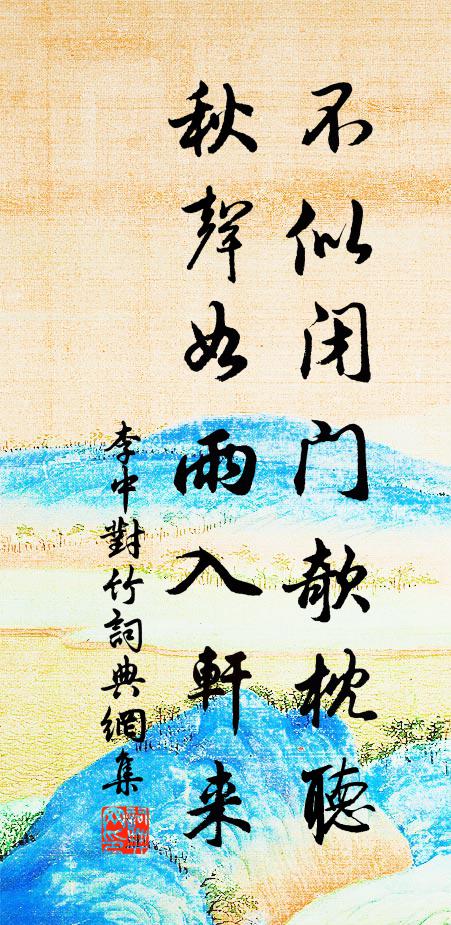 不似闭门欹枕聽
秋聲如雨入軒来
李中對竹詞典網集